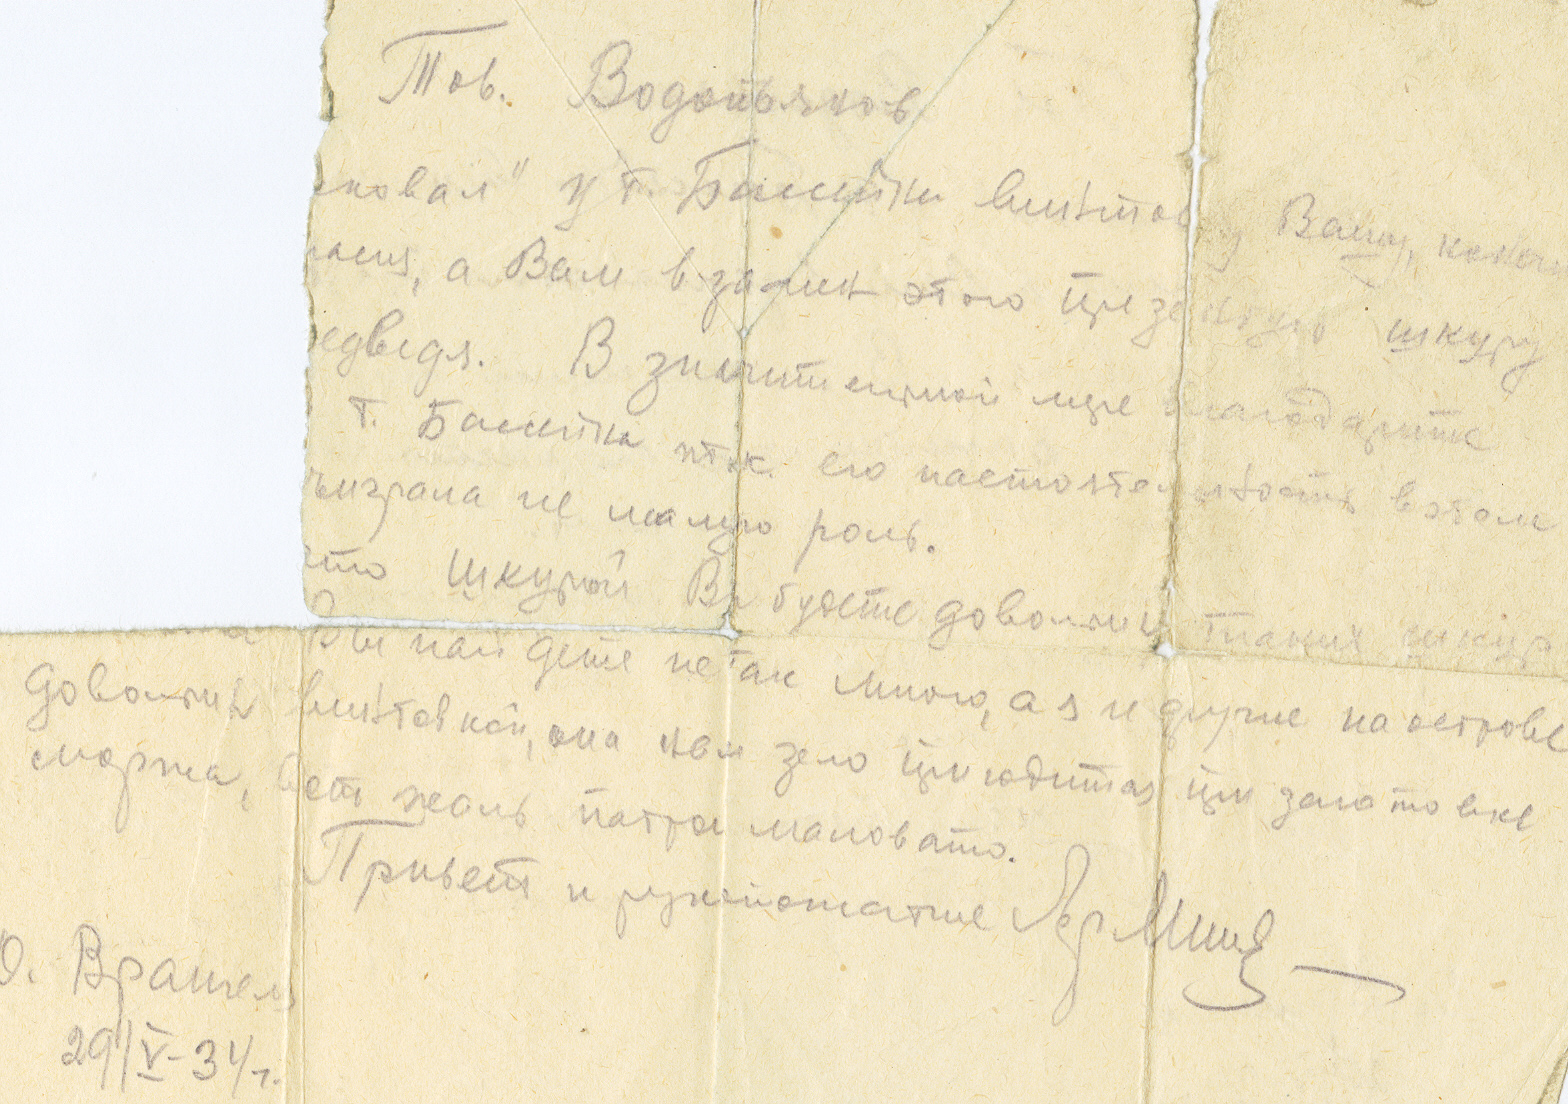 Тов. Водопьянов
ковал" у т. Бассейна винтовку Вашу,
а Вам взамен этого презентую шкуру
едведя. В значительной мере благодарите
т. Бассейна его настоятельность в этом
ыграла не малую роль.
что шкурой Вы будете довольны таких шкур
Вы найдете не так много, а я и другие на острове
довольны винтовкой, она нам зело пригодится при заготовке
моржа, жаль патрон маловато.
Привет и рукопожатие
О. Врангеля
29/V-34г.